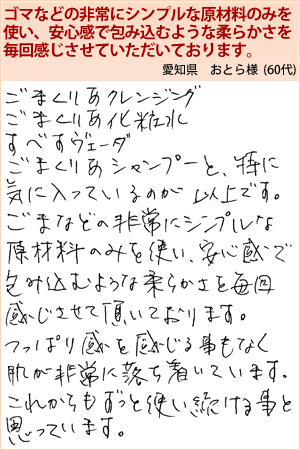 ゴマなどの非常にシンプルな原材料のみを
使い、安心感で包み込むような柔らかさを
毎回感じさせていただいております。
愛知県　おとら様 (60代)
ごまくりあクレンジング
ごまくりあ化粧水
すべすヴェーダ
ごまくりあシャンプーと、特に
気に入っているのが以上です。
ごまなどの非常にシンプルな
原材料のみを使い、安心感で
包み込むような柔らかさを毎回
感じさせて頂いております。
つっぱり感を感じる事もなく
肌が非常に落ち着いています。
これからもずっと使い続ける事と
思っています。